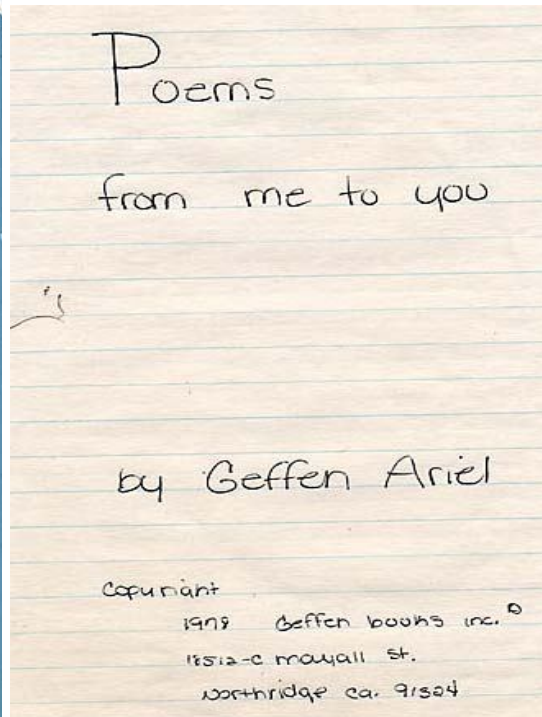 Poems
from me to you
by Geffen Ariel
copyright
1978 Geffen books inc. ©
18512-C mayall st.
Northridge ca. 91324